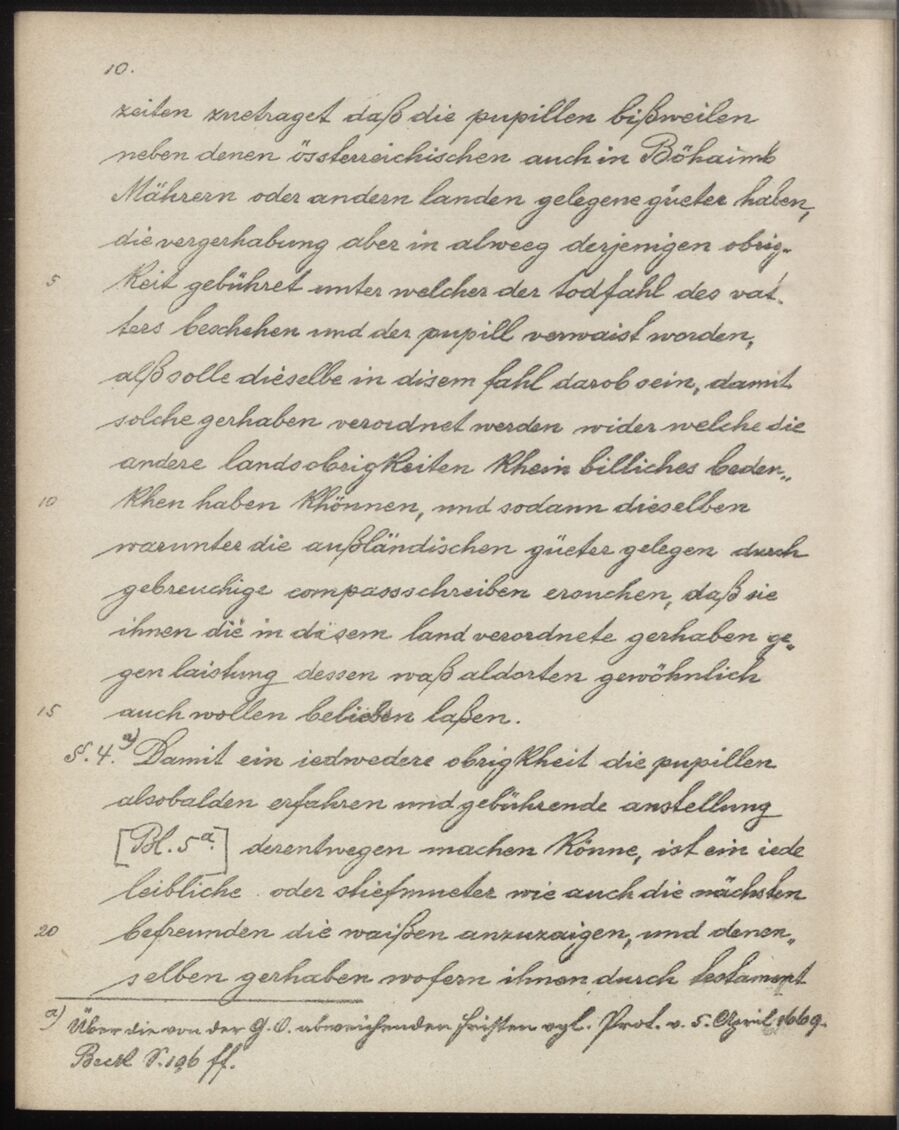 10.
zeiten zuetraget daß die pupillen bißweilen
neben denen össterreichischen auch in Böhaimb
Mährern oder andern landen gelegene güeter haben,
die vergerhabung aber in alweeg derjenigen obrig-
5 keit gebühret unter welcher der todfahl des vat-
ters beschehen und der pupill verwaist worden,
alß solle dieselbe in disem fahl darob sein, damit
solche gerhaben verordnet werden wider welche die
andere landsobrigkeiten khein billiches beden„
10 khen haben khönnen, und sodann dieselben
warunter die außländischen güeter gelegen durch
gebreuchige compassschreiben ersuchen, daß sie
ihnen die in disem land verordnete gerhaben ge„
gen laistung dessen waß aldorten gewöhnlich
15 auch wollen belieben laßen.
§. 4. a) Damit ein iedwedere obrigkheit die pupillen
alsobalden erfahren und gebührende anstellung
[Bl. 5a.] derentwegen machen könne, ist ein iede
leibliche oder stiefmueter wie auch die nächsten
20 befreunden die waißen anzuzaigen, und denen„
selben gerhaben wofern ihnen durch testament
a) Über die von der G. O. abweichenden Fristen vgl. Prot. v. 5. April 1669.
S. 196 ff.